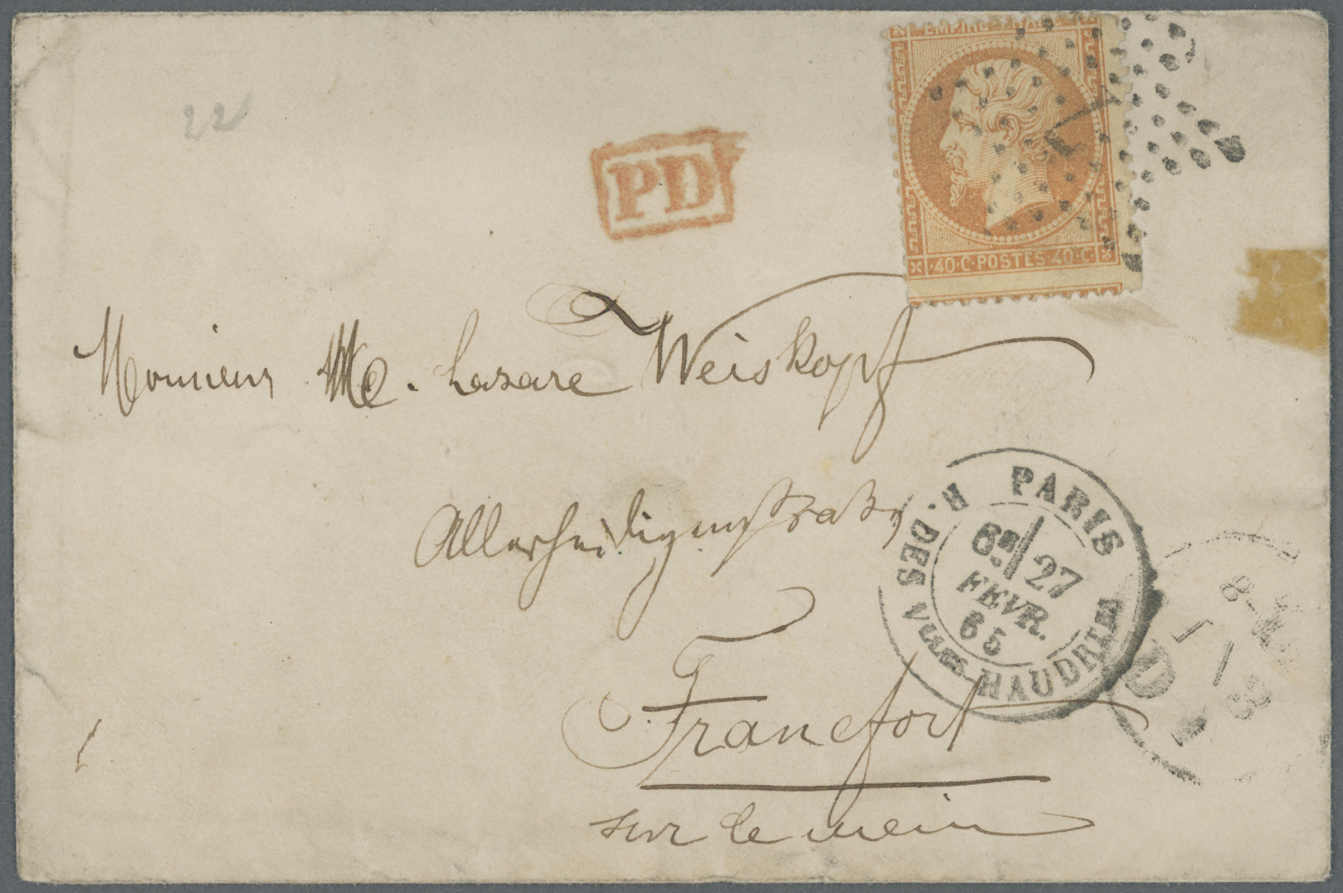 22
EMPIRE FRANC
40·C·POSTES·40·C
7
PD
Monsieur Me. Lazare Weiskopf
Allerheiligenstraße
Francfort
sur le mein
PARIS
R. DES VLLES HAUDRTTES
6E/27
FEVR.
65
1 / 3